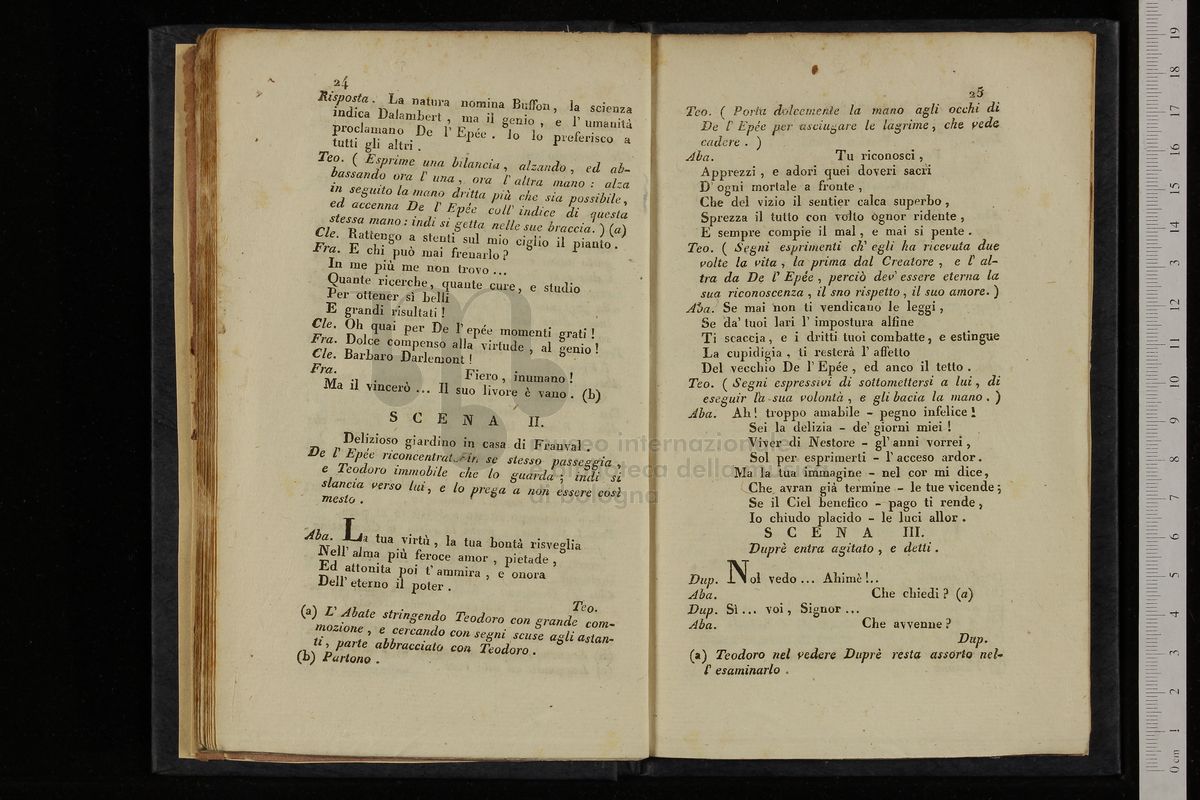 24
Risposta. La natura nomina Buffon, la scienza
indica Dalambert, ma il genio, e l'umanità
proclamano De l'Epée. Io lo preferisco a
tutti gli altri.
Teo. ( Esprime una bilancia, alzando, ed ab-
bassando ora l'una, ora l'altra mano: alza
in seguito la mano dritta più che sia possibile,
ed accenna De l'Epée coll'indice di questa
stessa mano: indi si getta nelle sue braccia. ) (a)
Cle. Rattengo a stenti sul mio ciglio il pianto.
Fra. E chi può mai frenarlo?
In me più me non trovo ...
Quante ricerche, quante cure, e studio
Per ottener sì belli
E grandi risultati!
Cle. Oh quai per De l'epée momenti grati!
Fra. Dolce compenso alla virtude, al genio!
Cle. Barbaro Darlemont!
Fra. Fiero, inumano!
Ma il vincerò ... Il suo livore è vano. (b)
SCENA II.
Delizioso giardino in casa di Franval.
De l'Epée riconcentrat in se stesso passeggia,
e Teodoro immobile che lo guarda; indi si
slancia verso lui, e lo prega a non essere così
mesto.
Aba. La tua virtù, la tua bontà risveglia
Nell'alma più feroce amor, pietade,
Ed attonita poi t'ammira, e onora
Dell'eterno il poter.
Teo.
(a) L'Abate stringendo Teodoro con grande com-
mozione, e cercando con segni scuse agli astan-
ti, parte abbracciato con Teodoro.
(b) Partono.
25
Teo. ( Porta dolcemente la mano agli occhi di
De l'Epée per asciugare le lagrime, che vede
cadere. )
Aba. Tu riconosci,
Apprezzi, e adori quei doveri sacri
D'ogni mortale a fronte,
Che del vizio il sentier calca superbo,
Sprezza il tutto con volto ognor ridente,
E sempre compie il mal, e mai si pente.
Teo. ( Segni esprimenti ch'egli ha ricevuta due
volte la vita, la prima dal Creatore, e l'al-
tra da De l'Epée, perciò dev'essere eterna la
sua riconoscenza, il sno rispetto, il suo amore. )
Aba. Se mai non ti vendicano le leggi,
Se da'tuoi lari l'impostura alfine
Ti scaccia, e i dritti tuoi combatte, e estingue
La cupidigia, ti resterà l'affetto
Del vecchio De l'Epée, ed anco il tetto.
Teo. ( Segni espressivi di sottomettersi a lui, di
eseguir la sua volontà, e gli bacia la mano. )
Aba. Ah! troppo amabile - pegno infelice!
Sei la delizia - de'giorni miei!
Viver di Nestore - gl'anni vorrei,
Sol per esprimerti - l'acceso ardor.
Ma la tua immagine - nel cor mi dice,
Che avran già termine - le tue vicende;
Se il Ciel benefico - pago ti rende,
Io chiudo placido - le luci allor.
SCENA III.
Duprè entra agitato, e detti.
Dup. Nol vedo ... Ahimè!..
Aba. Che chiedi? (a)
Dup. Sì ... voi, Signor ...
Aba. Che avvenne?
Dup.
(a) Teodoro nel vedere Duprè resta assorto nel-
l'esaminarlo.